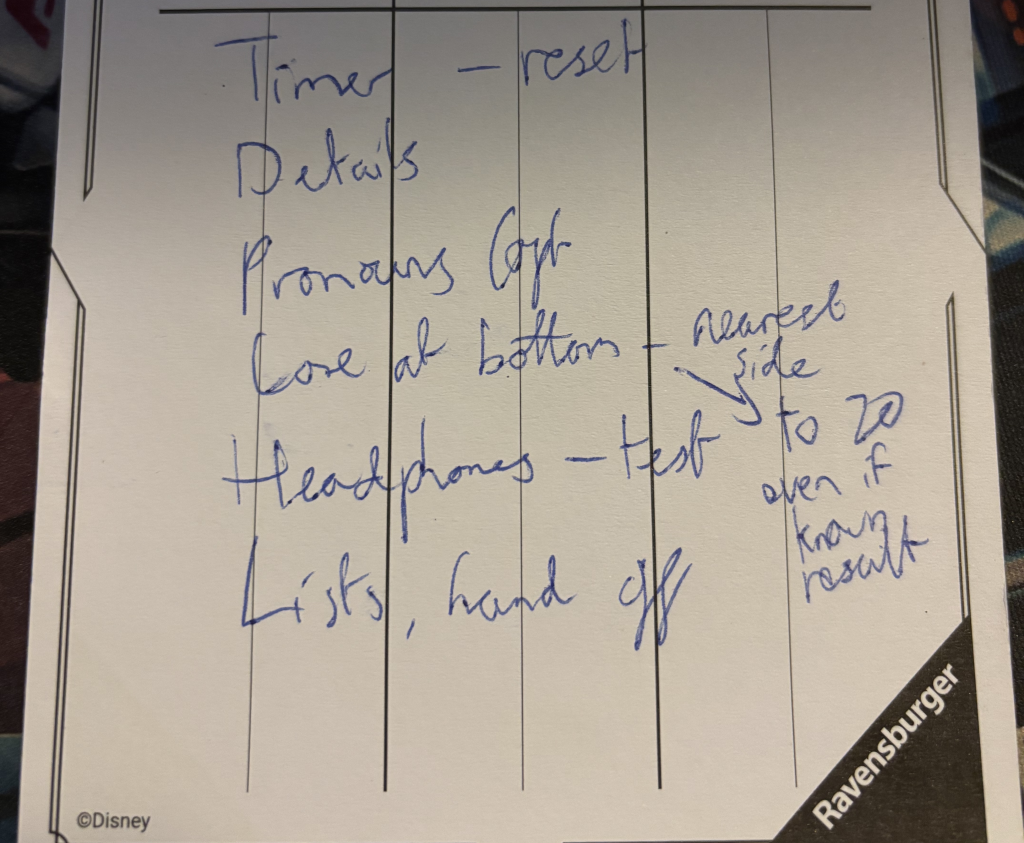 Timer - reset
Details
Pronouns (opt
Lore at bottom - nearest
side
to 20
even if
known
result
Headphones - test
Lists, hand off
Ravensburger
©Disney